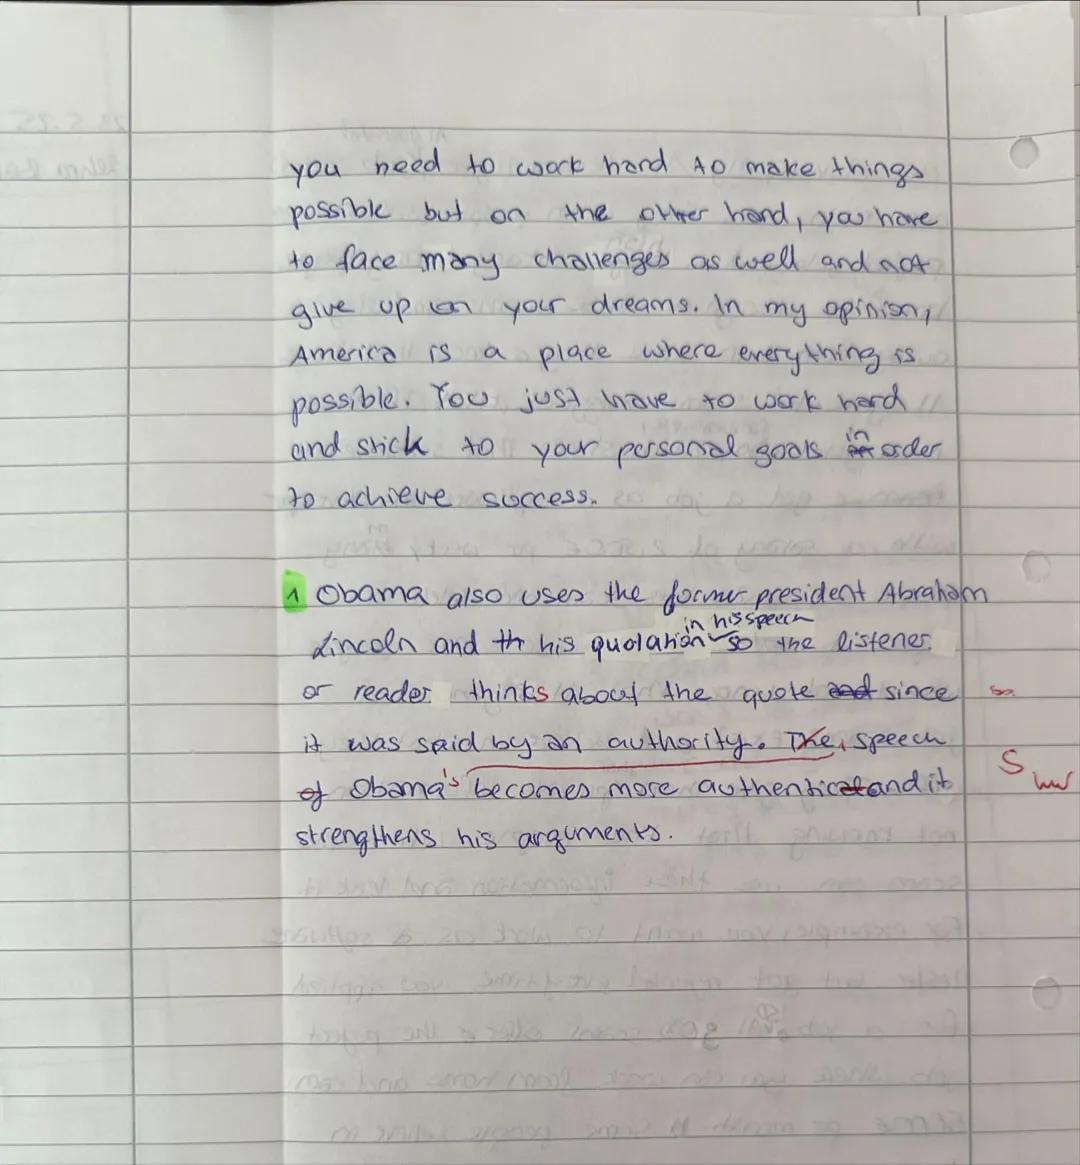 you need to work hard to make things
possible but on the other hand, you have
to face many challenges as well and not
give up on your dreams. In my opinion,
America is a place where everything is
possible. You just have to work hard
and stick to your personal goals in order
to achieve success.
1 Obama also uses the former president Abraham
in his speech
Lincoln and th his quotation so the listener
or reader thinks about the quote and since
it was said by an authority. The, speech
of Obama's becomes more authentic and it
strengthens his arguments.
S